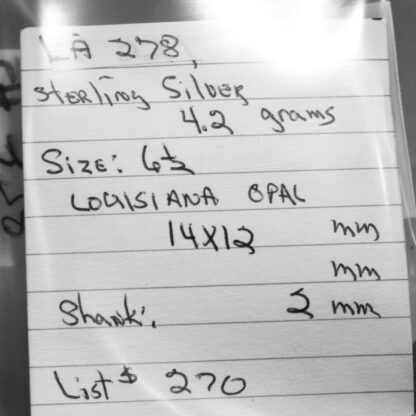 LA 278,
Sterling Silver
4.2 grams
Size: 6½
LOUISIANA OPAL
14x12 mm
mm
Shank: 2 mm
List $ 270